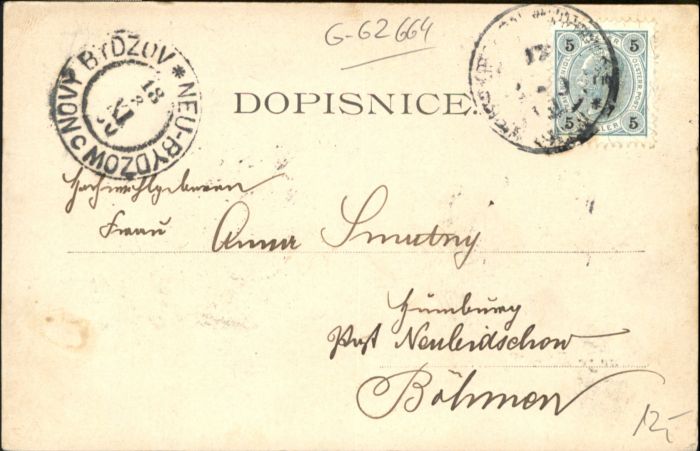 G-62664
NOVÝ BYDŽOV * NEU-BYDZOW C
18
XI
5 5
5 5
DOPISNICE.
Hochwohlgeboren
Frau Anna Smutný
Humburg
Post Neubidschow
Böhmen
12,-